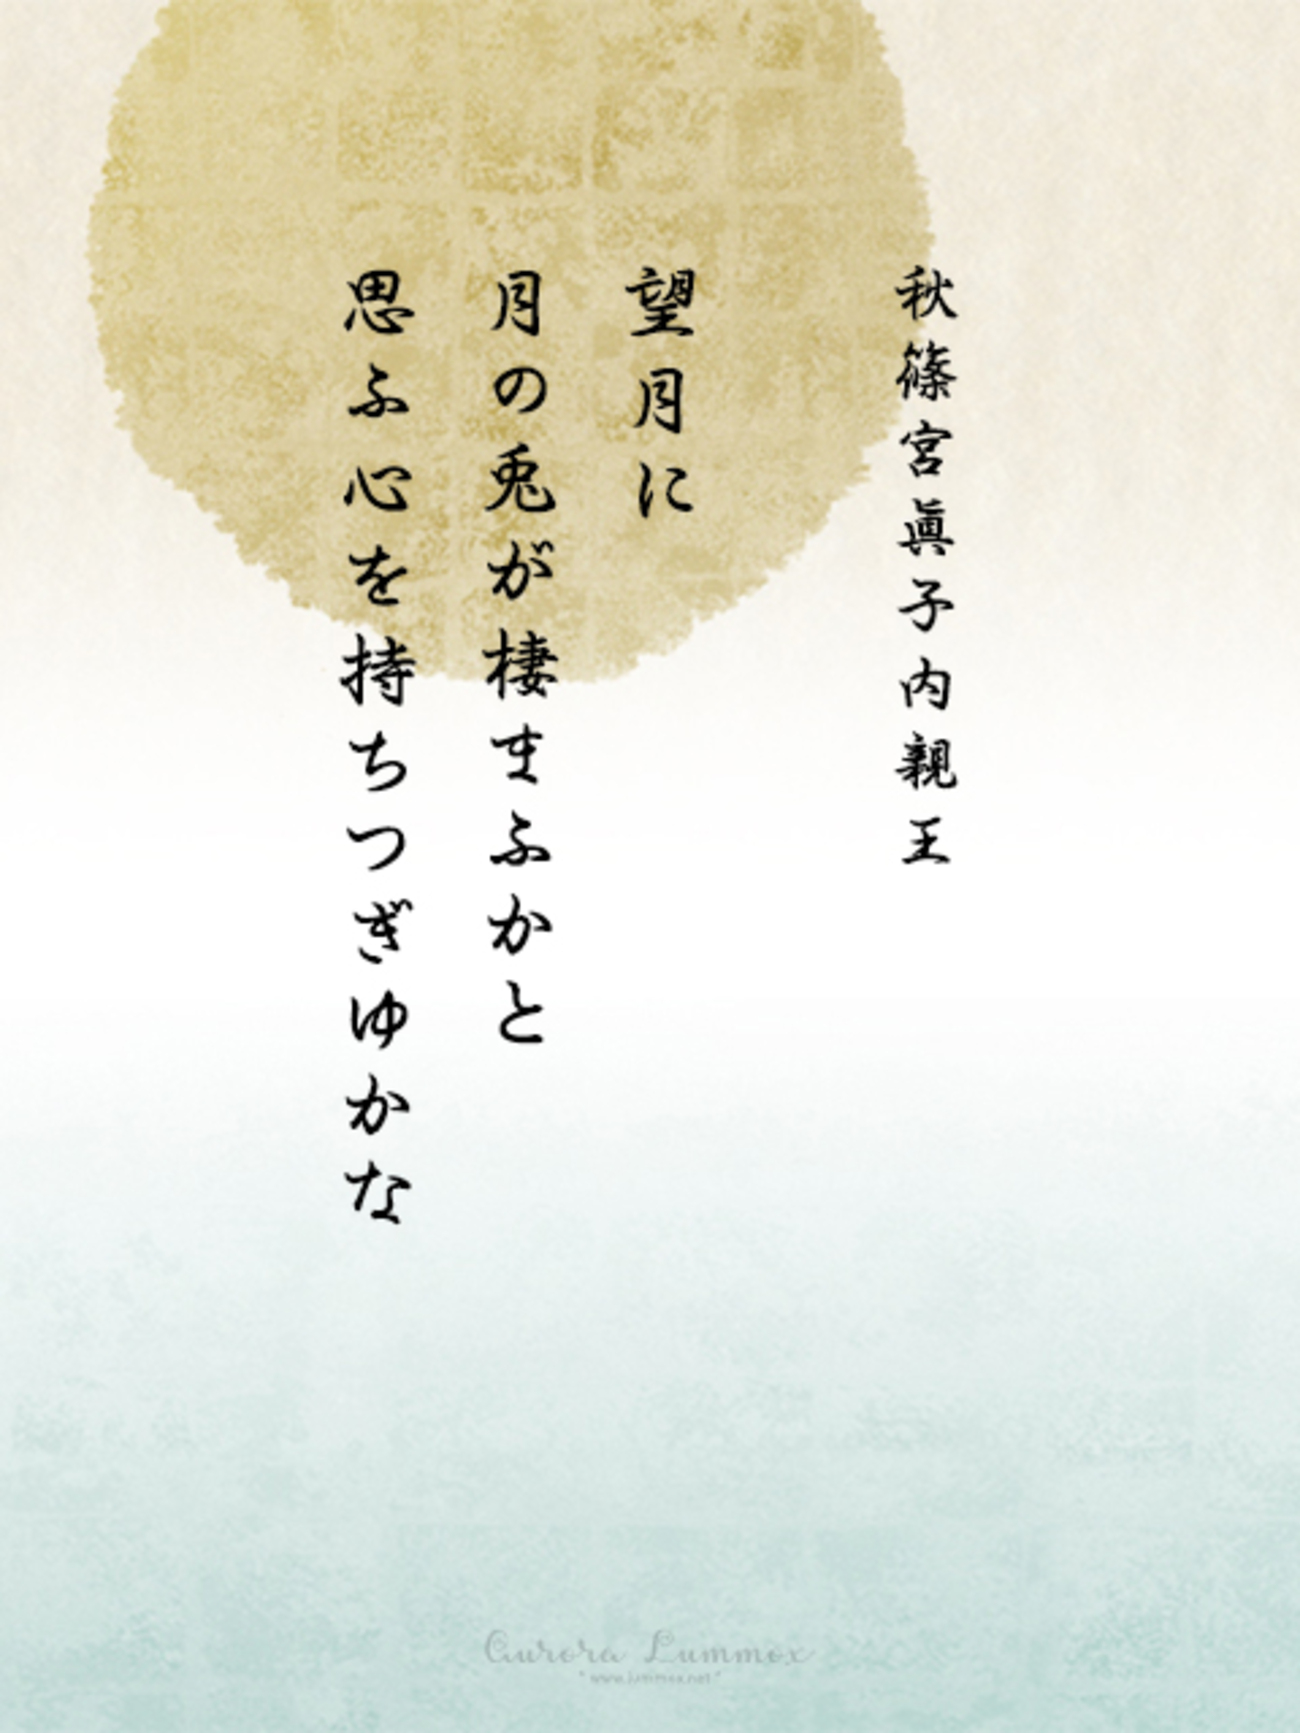 秋篠宮眞子内親王
望月に
月の兎が棲まふかと
思ふ心を持ちつぎゆかな
Aurora Lummox
"www.lummox.net"